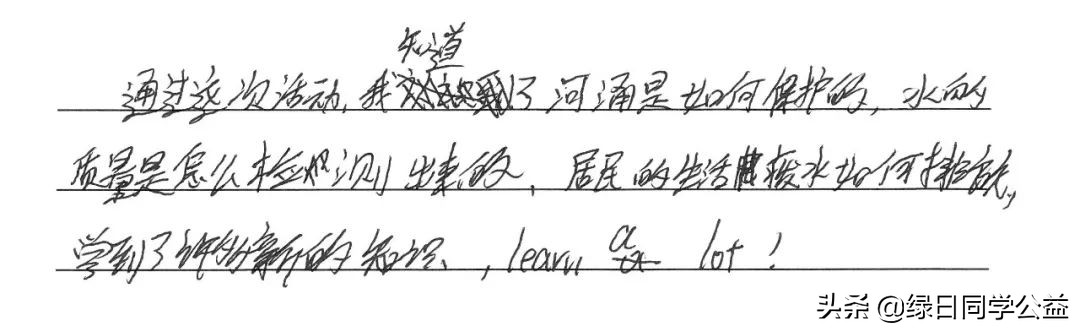 知道
通过这次活动，我了河涌是如何保护的，水的
质量是怎么检测出来的，居民的生活废水如何排放，
学到了许多新的知识，learn a lot！
头条@绿日同学公益